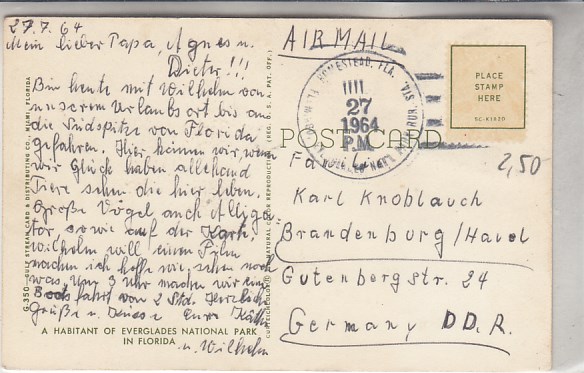 27.7.64
Mein lieber Papa, Agnes u.
Dieter!!!
Bin heute mit Wilhelm von
unserem Urlaubsort bis an
die Südspitze von Florida
gefahren. Hier können wir, wenn
wir Glück haben allehand
Tiere sehn die hier leben.
Große Vögel auch Alliga
tor, sowie auf der Karte.
Wilhelm will einen Film
machen ich hoffe wir sehen noch
was. Um 3 Uhr machen wir eine
Bootsfahrt von 2 Std. Herzliche
Grüße u. Küsse Eure Käthe
u. Wilhelm
A HABITANT OF EVERGLADES NATIONAL PARK
IN FLORIDA
G-350 - GULF STREAM CARD & DISTRIBUTING CO., MIAMI, FLORIDA
NATURAL COLOR REPRODUCTION (REG. U. S. PAT. OFF.)
AIR MAIL
HOMESTEAD, FLA.
27
1964
P.M.
POST CARD
PLACE
STAMP
HERE
2,50
Karl Knoblauch
Brandenburg/Havel
Gutenbergstr. 24
Germany DD.R.